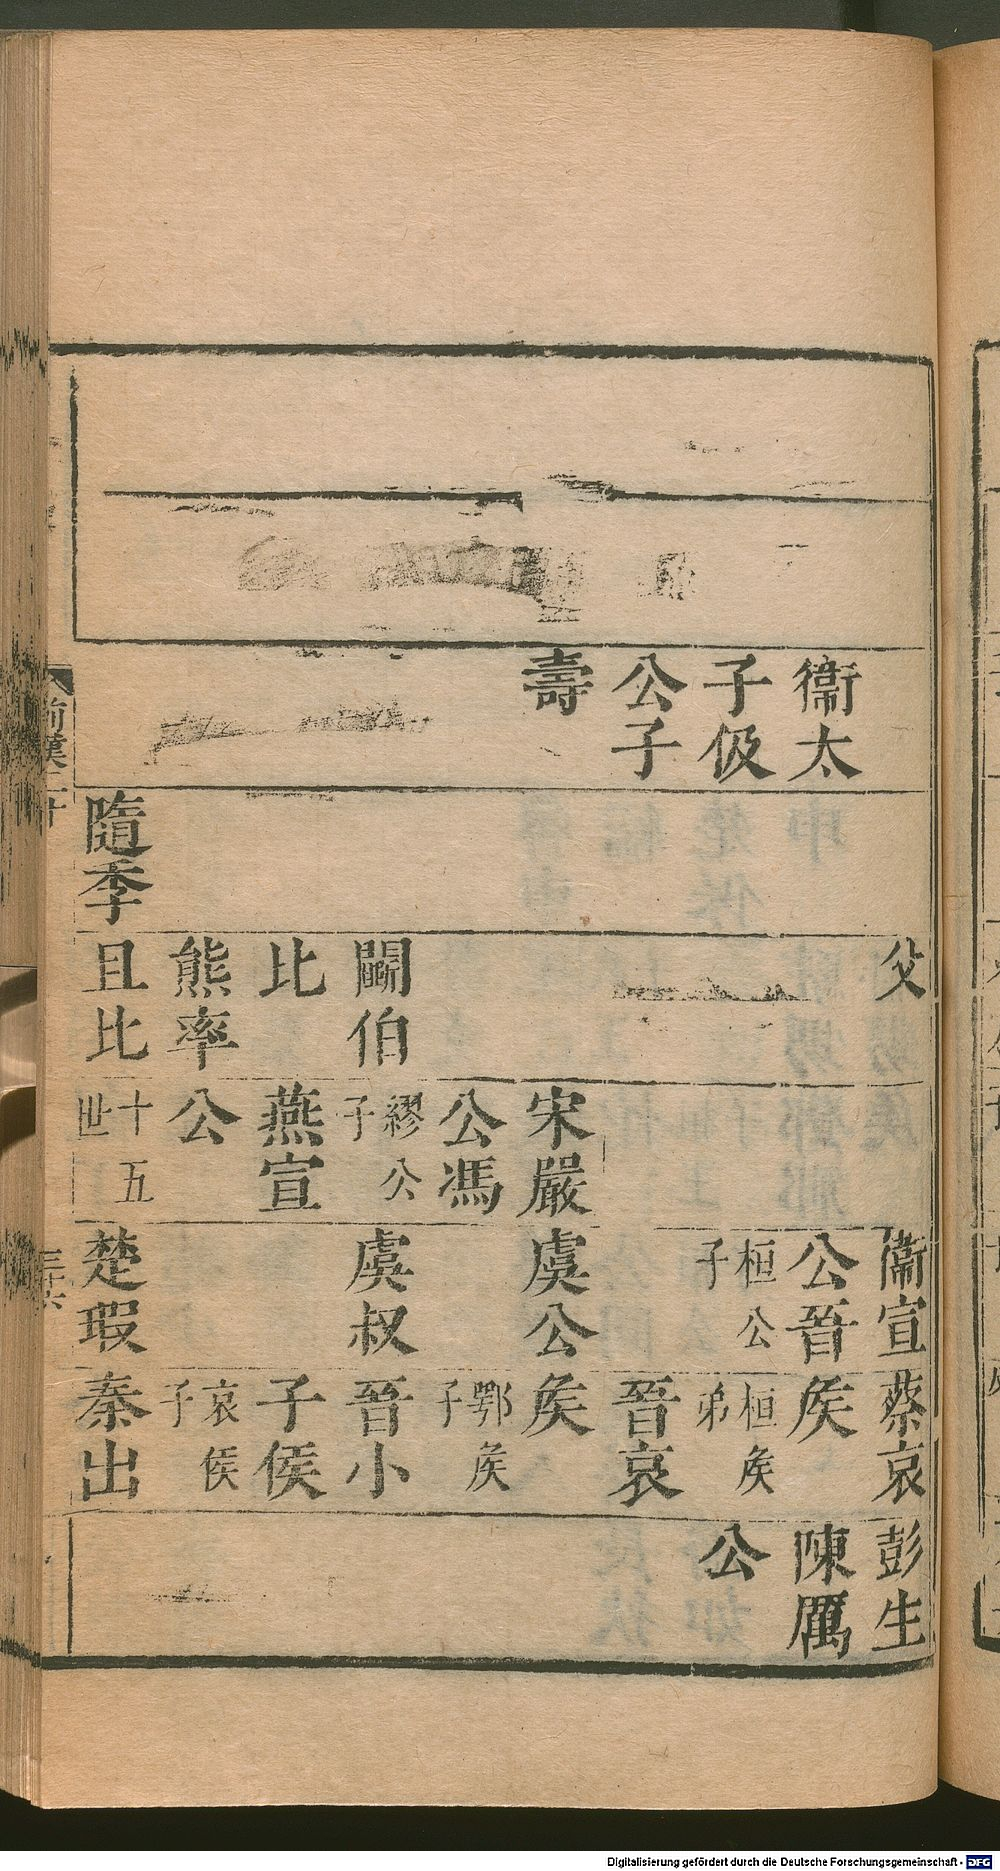 衞太
子伋
公子
壽
隨季
父
鬭伯
比
熊率
且比
宋嚴
公馮
繆公
子
燕宣
公
十五
世
衞宣
公晉
桓公
子
虞公
虞叔
楚瑕
蔡哀
矦
桓矦
弟
晉哀
矦
鄂矦
子
晉小
子侯
哀侯
子
秦出
彭生
陳厲
公
前漢二十
三十六
Digitalisierung gefördert durch die Deutsche Forschungsgemeinschaft - DFG